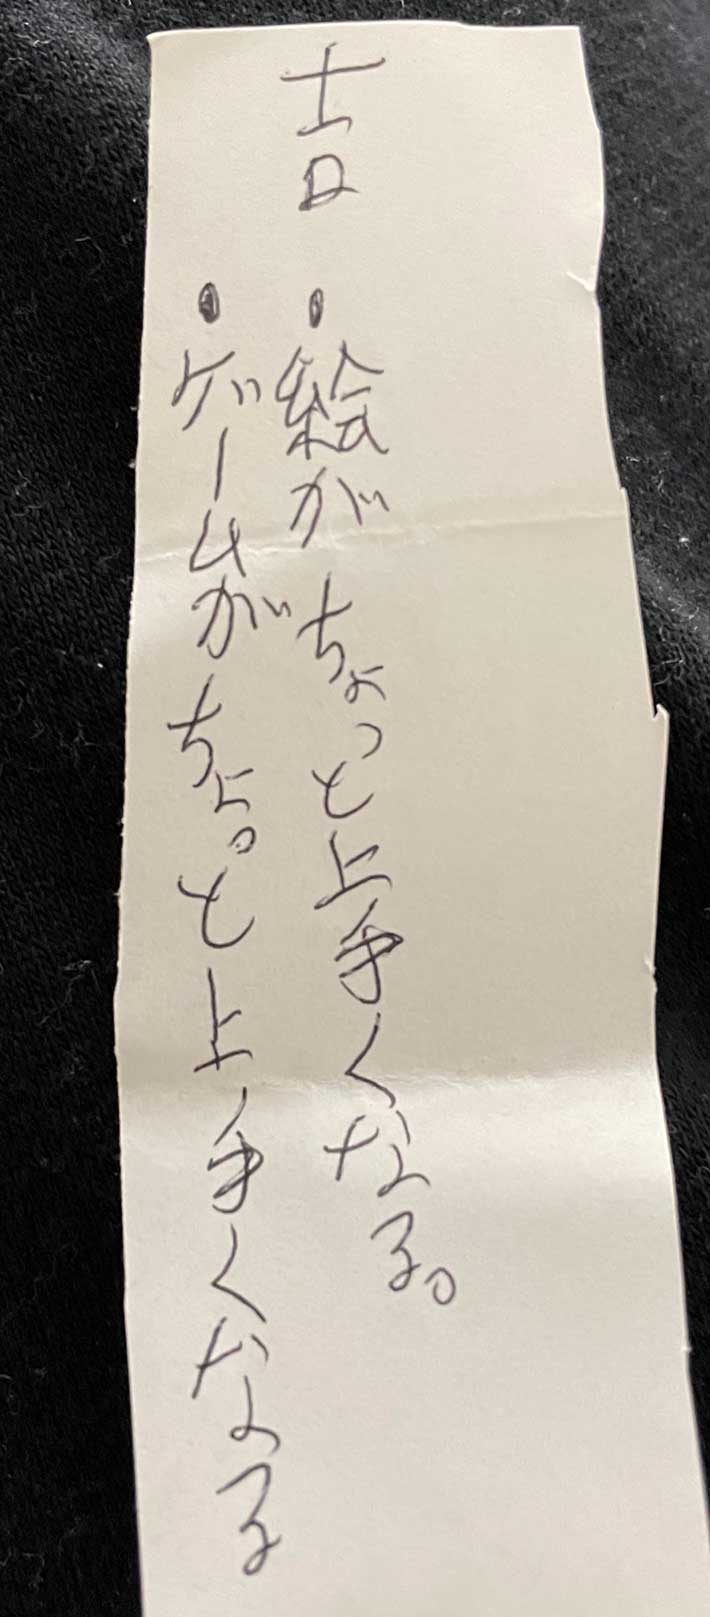 吉
・絵がちょっと上手くなる。
・ゲームがちょっと上手くなる